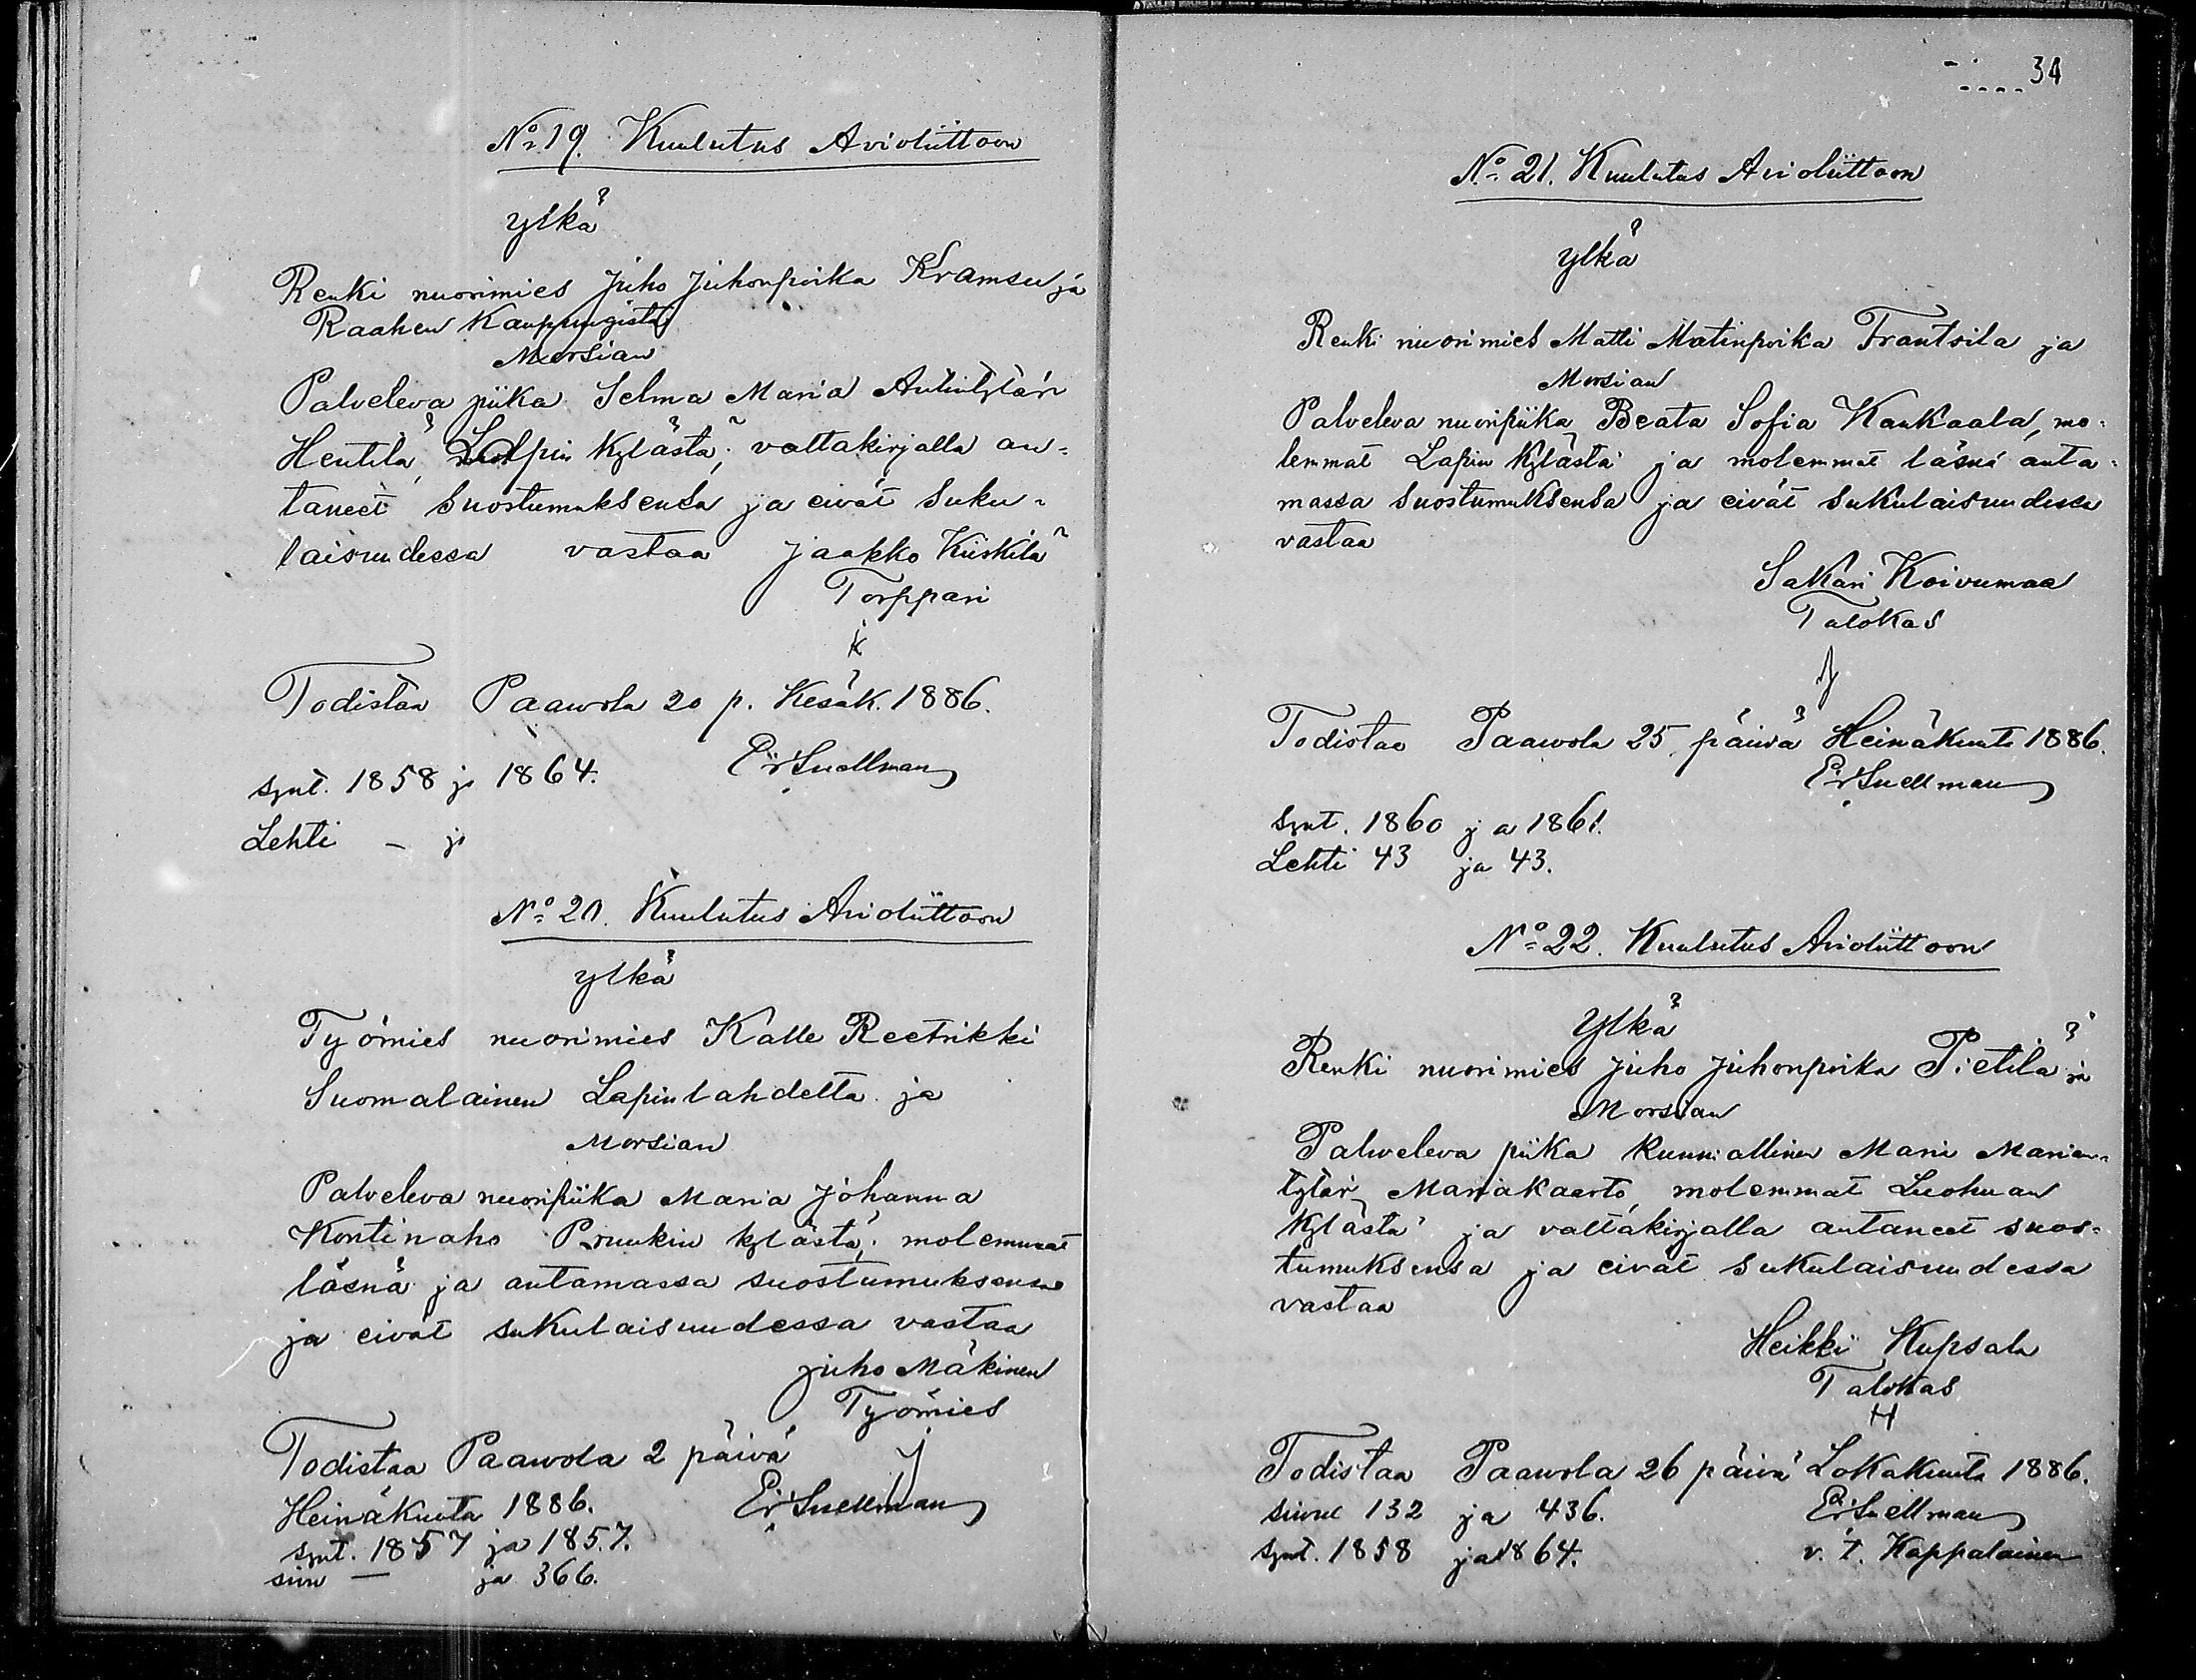 No 19. Kuulutus Avioliittoon
ylkä
Renki nuorimies Juho Juhonpoika Kramsu ja
Raahen Kaupungista
Morsian
Palveleva piika Selma Maria Antintytär
Hentilä, Lapin kylästä; valtakirjalla an-
taneet suostumuksensa ja eivät suku-
laisuudessa vastaa Jaakko Kiiskilä
Torppari
Todistaa Paawola 20 p. Kesäk. 1886.
synt. 1858 ja 1864. Er Snellman
Lehti — ja
No 20. Kuulutus Avioliittoon
ylkä
Työmies nuorimies Kalle Reetrikki
Suomalainen Lapinlahdelta ja
Morsian
Palveleva nuoripiika Maria Johanna
Kontinaho Pruukin kylästä; molemmat
läsnä ja antamassa suostumuksensa
ja eivät sukulaisuudessa vastaa
Juho Mäkinen
Työmies
Todistaa Paawola 2 päivä
Heinäkuuta 1886. Er Snellman
synt. 1857 ja 1857.
sivu — ja 366.
34
No 21. Kuulutus Avioliittoon
ylkä
Renki nuorimies Matti Matinpoika Frantsila ja
Morsian
Palveleva nuoripiika Beata Sofia Kankaala, mo-
lemmat Lapin kylästä ja molemmat läsnä anta-
massa suostumuksensa ja eivät sukulaisuudessa
vastaa
Sakari Koivumaa
Talokas
Todistaa Paawola 25 päivä Heinäkuuta 1886.
Er Snellman
synt. 1860 ja 1861.
Lehti 43 ja 43.
No 22. Kuulutus Avioliittoon
Ylkä
Renki nuorimies Juho Juhonpoika Pietilä ja
Morsian
Palweleva piika kunniallinen Maria Marian-
tytär Mariakaarto, molemmat Luohuan
kylästä ja valtakirjalla antaneet suos-
tumuksensa ja eivät sukulaisuudessa
vastaa
Heikki Kupsala
Talokas
H
Todistaa Paawola 26 päivä Lokakuuta 1886.
sivut 132 ja 436. Er Snellman
synt. 1858 ja 1864. v. t. Kappalainen